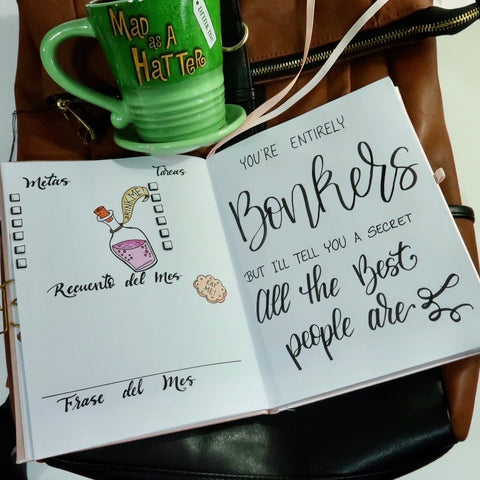 MAD
AS A
HATTER
DRINK ME
Metas
Tareas
DRINK ME
Recuento del Mes
EAT
ME!
Frase del Mes
YOU'RE ENTIRELY
Bonkers
BUT I'LL TELL YOU A SECRET
All the Best
people are